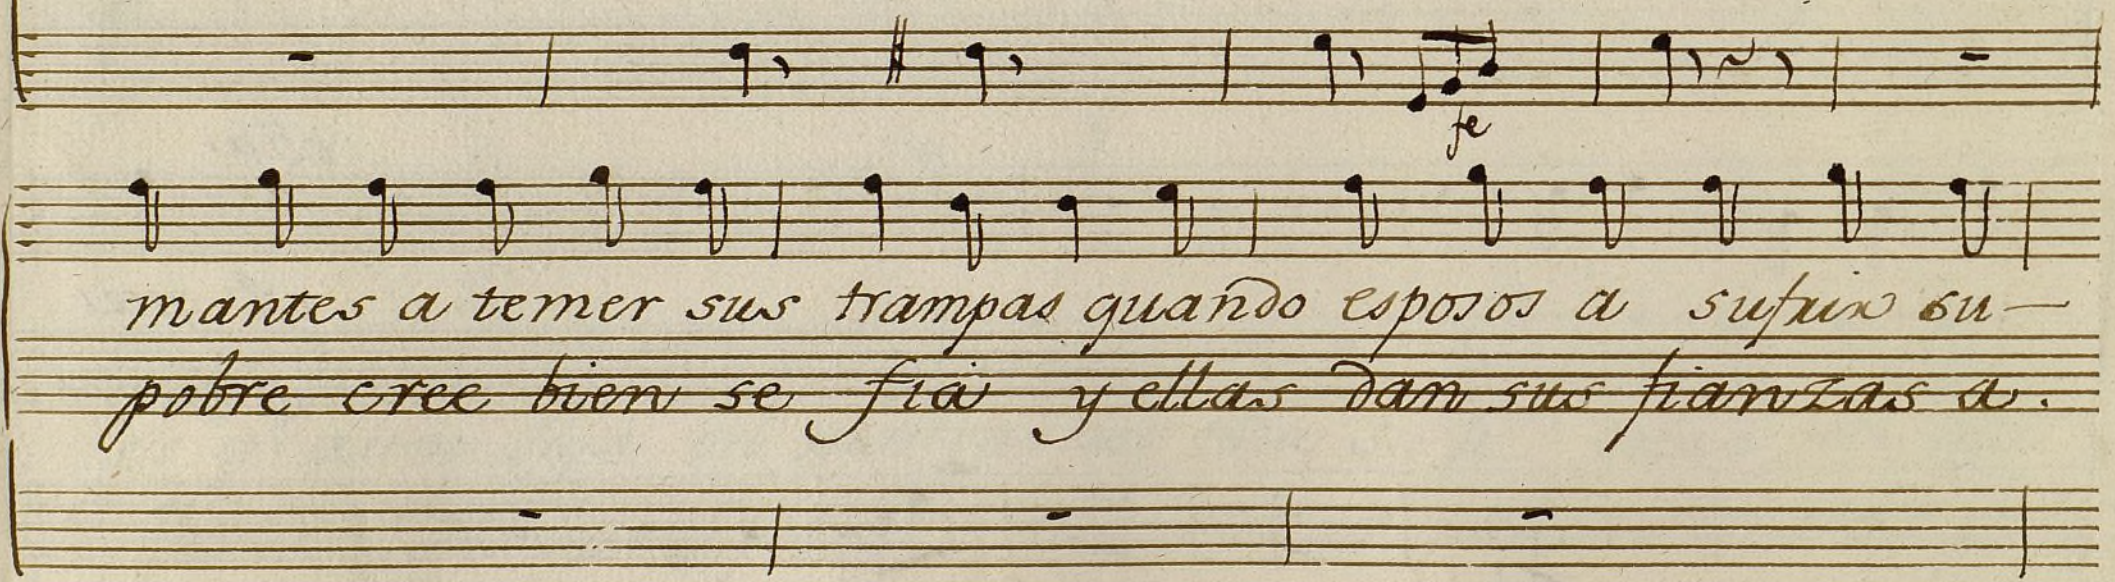 fe
mantes a temer sus trampas quando esposos a sufrir su—
pobre cree bien se fia y ellas dan sus fianzas a.